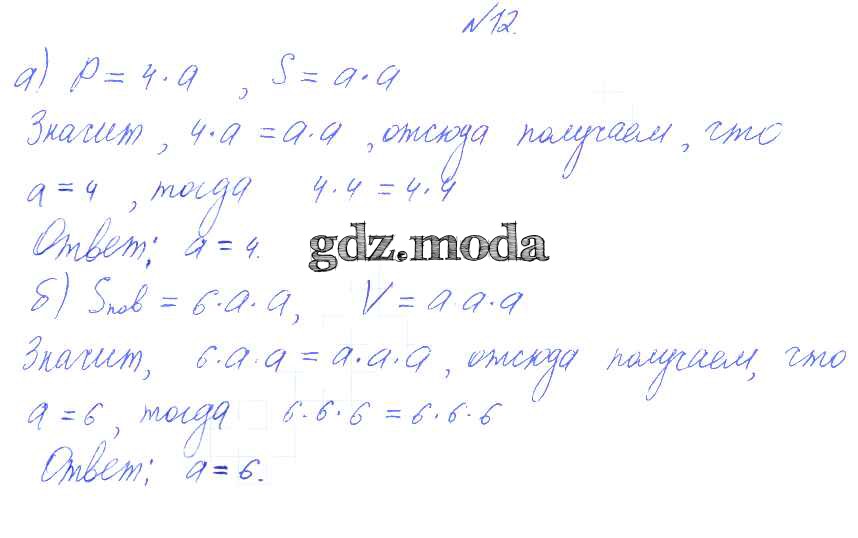 №12.
а) P = 4·a , S = a·a
Значит, 4·a = a·a, отсюда получаем, что
a = 4 , тогда 4·4 = 4·4
Ответ: a = 4.
gdz.moda
б) Sпов = 6·a·a, V = a·a·a
Значит, 6·a·a = a·a·a, отсюда получаем, что
a = 6, тогда 6·6·6 = 6·6·6
Ответ: a = 6.